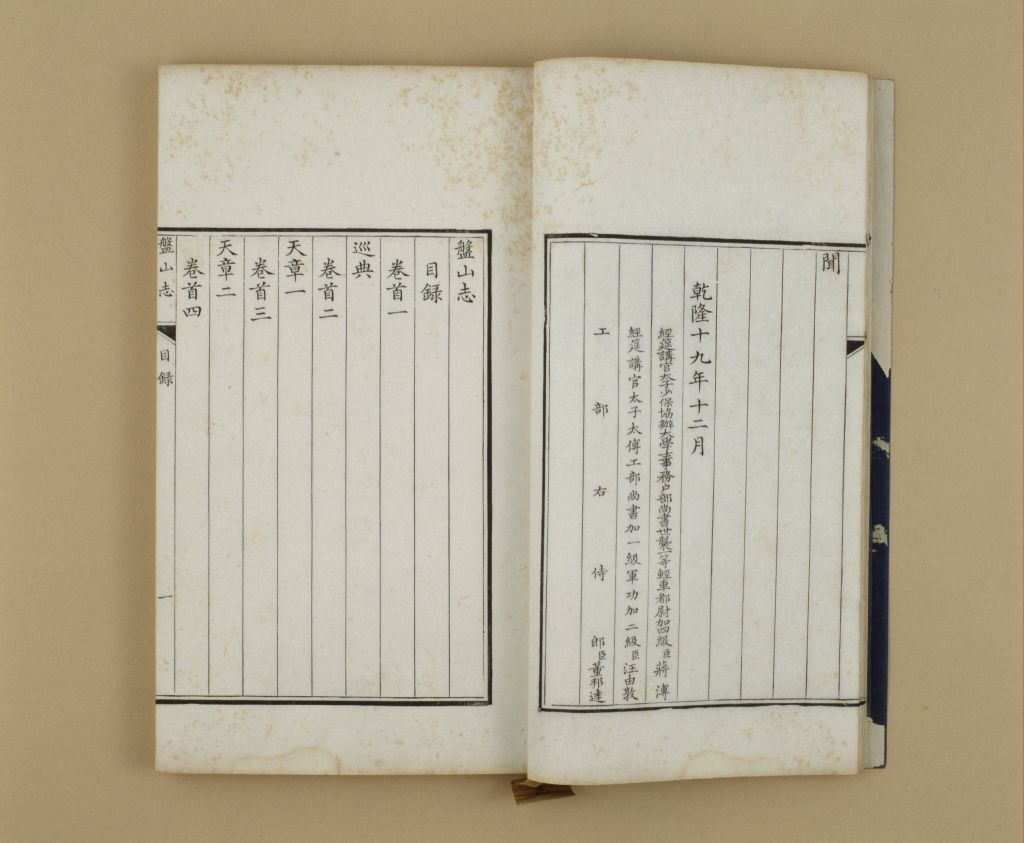 聞
乾隆十九年十二月
經筵講官太子少保協辦大學士事務户部尚書世襲一等輕車都尉加四級臣蔣溥
經筵講官太子太傅工部尚書加一級軍功加二級臣汪由敦
工部右侍郎臣董邦達
盤山志
目録
卷首一
巡典
卷首二
天章一
卷首三
天章二
卷首四
盤山志 目録 一